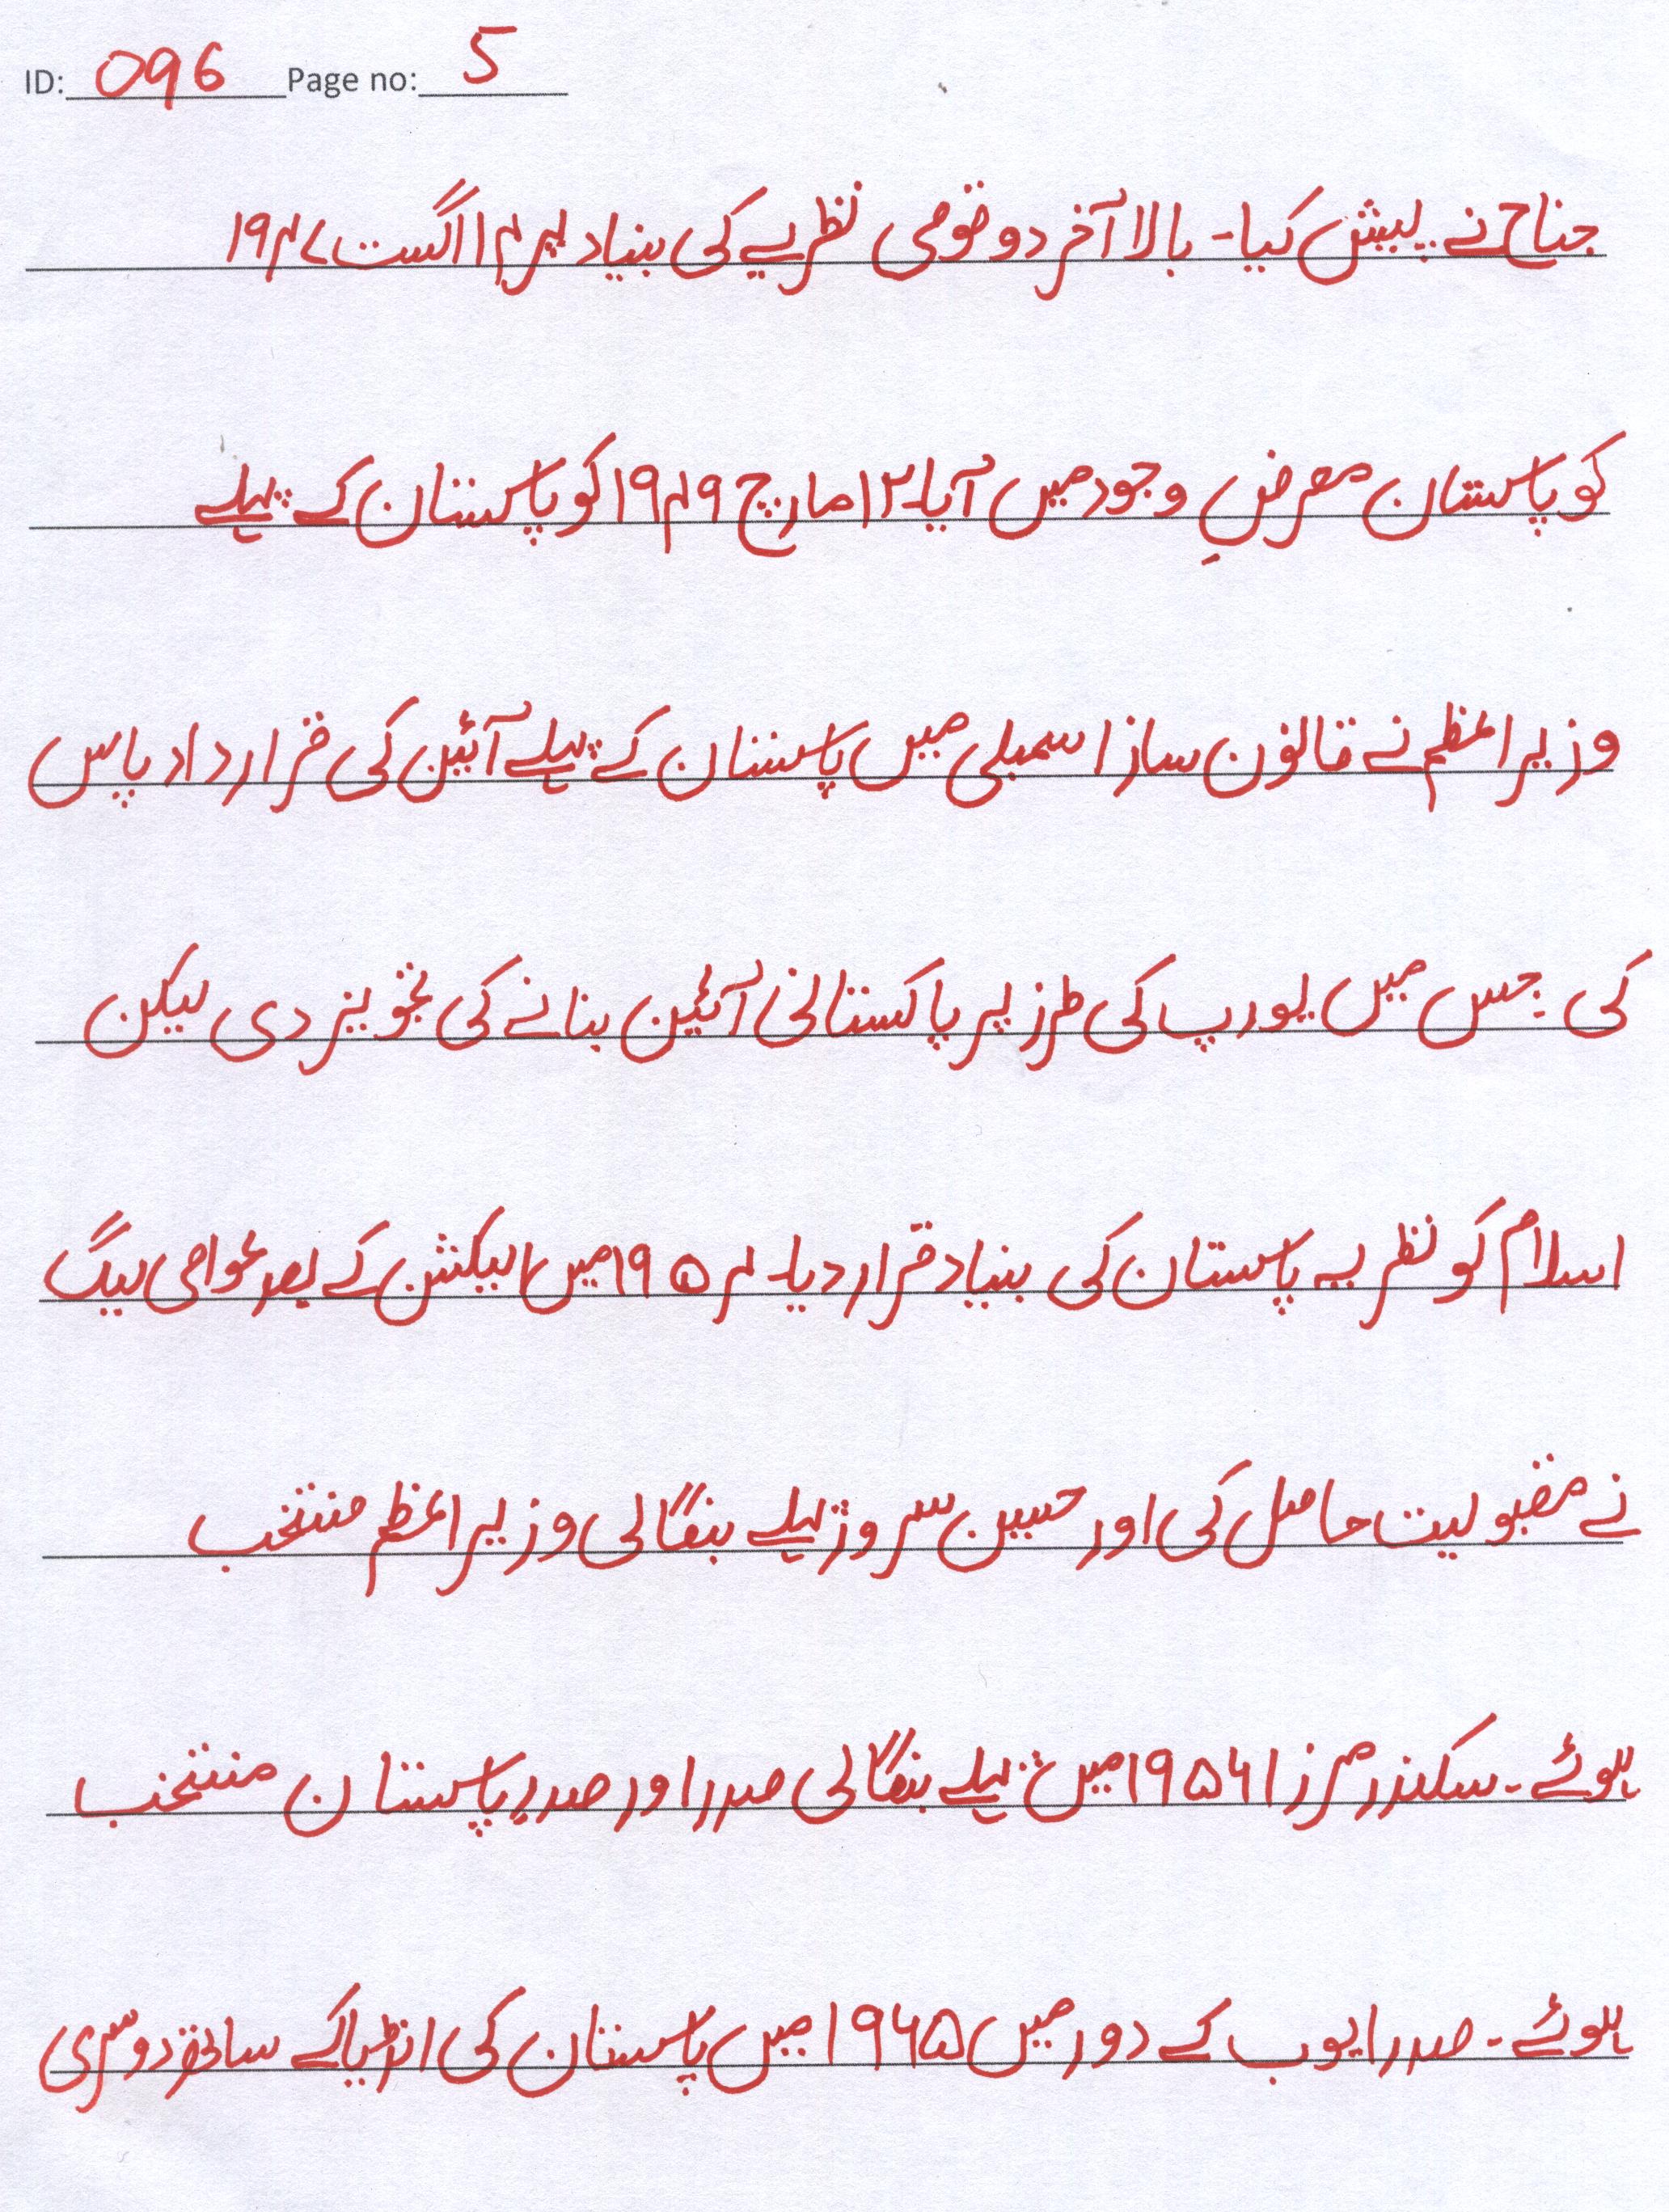 ID: 096 Page no: 5
جناح نے پیش کیا۔ بالا آخر دو قومی نظریے کی بنیاد پر ۱۴ اگست ۱۹۴۷
کو پاکستان معرضِ وجود میں آیا۔ ۱۲ مارچ ۱۹۴۹ کو پاکستان کے پہلے
وزیر اعظم نے قانون ساز اسمبلی میں پاکستان کے پہلے آئین کی قرارداد پاس
کی جس میں یورپ کی طرز پر پاکستانی آئین بنانے کی تجویز دی لیکن
اسلام کو نظریہ پاکستان کی بنیاد قرار دیا۔ ۱۹۵۴ میں الیکشن کے بعد عوامی لیگ
نے مقبولیت حاصل کی اور حسین سروز پہلے بنگالی وزیر اعظم منتخب
ہوئے۔ سکندر مرزا ۱۹۵۶ میں پہلے بنگالی صدر اور صدرِ پاکستان منتخب
ہوئے۔ صدر ایوب کے دور میں ۱۹۶۵ میں پاکستان کی انڈیا کے ساتھ دوسری